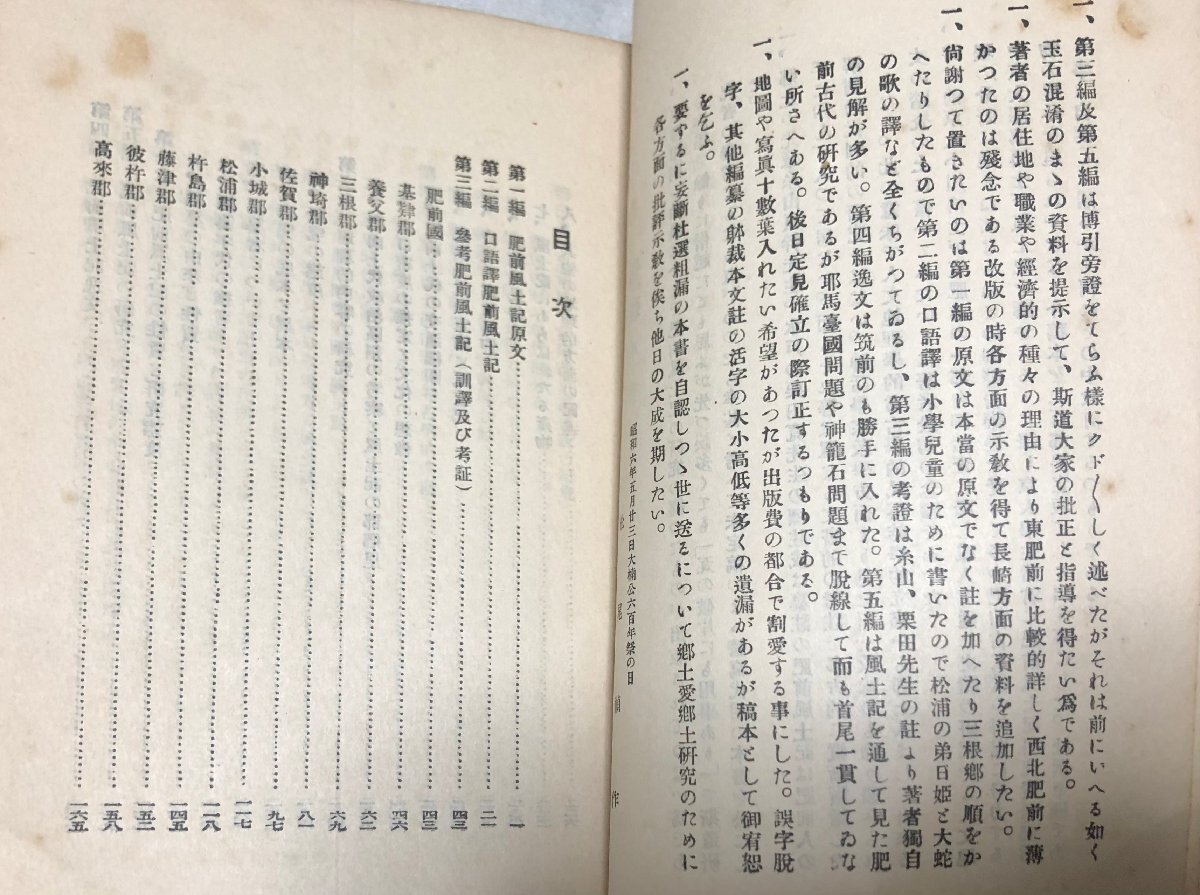 一、第三編及第五編は博引旁證をてらふ樣にクド〱しく述べたがそれは前にいへる如く
玉石混淆のまゝの資料を提示して、斯道大家の批正と指導を得たい爲である。
一、著者の居住地や職業や經濟的の種々の理由により東肥前に比較的詳しく西北肥前に薄
かつたのは殘念である改版の時各方面の示敎を得て長崎方面の資料を追加したい。
一、尙謝つて置きたいのは第一編の原文は本當の原文でなく註を加へたり三根鄕の順をか
へたりしたもので第二編の口語譯は小學兒童のために書いたので松浦の弟日姬と大蛇
の歌の譯など全くちがつてゐるし、第三編の考證は糸山、栗田先生の註より著者獨自
の見解が多い。第四編逸文は筑前のも勝手に入れた。第五編は風土記を通して見た肥
前古代の硏究であるが耶馬臺國問題や神籠石問題まで脫線して而も首尾一貫してゐな
い所さへある。後日定見確立の際訂正するつもりである。
一、地圖や寫眞十數葉入れたい希望があつたが出版費の都合で割愛する事にした。誤字脫
字、其他編纂の躰裁本文註の活字の大小高低等多くの遺漏があるが稿本として御宥恕
を乞ふ。
一、要するに妄斷杜選粗漏の本書を自認しつゝ世に送るについて鄕土愛鄕土硏究のために
各方面の批評示敎を俟ち他日の大成を期したい。
昭和六年五月廿三日大楠公六百年祭の日
松尾禎作
目次
第一編 肥前風土記原文……一
第二編 口語譯肥前風土記……二一
第三編 參考肥前風土記(訓譯及び考証)……四三
肥前國……四三
基肄郡……四六
養父郡……六二
三根郡……六九
神埼郡……八一
佐賀郡……九七
小城郡……一一七
松浦郡……一一八
杵島郡……一四五
藤津郡……一五二
彼杵郡……一五八
高來郡……一六五